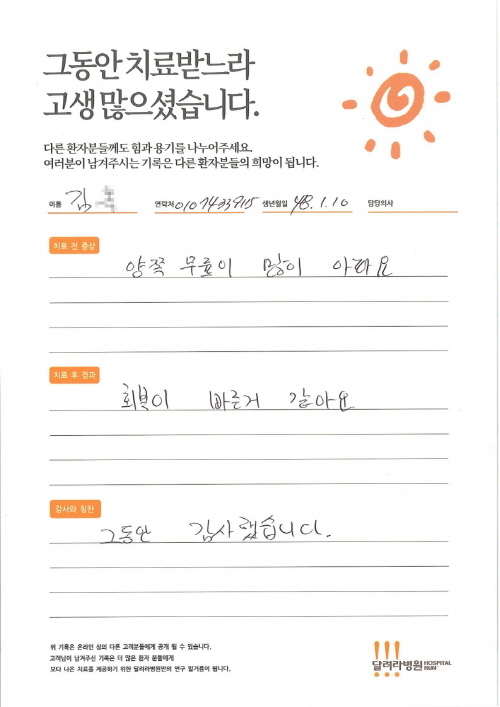 그동안 치료받느라
고생 많으셨습니다.
다른 환자분들께도 힘과 용기를 나누어주세요.
여러분이 남겨주시는 기록은 다른 환자분들의 희망이 됩니다.
이름 김 연락처 010 7433 9115 생년월일 48. 1. 10 담당의사
치료 전 증상
양쪽 무릎이 많이 아파요
치료 후 경과
회복이 빠른거 같아요
감사와 칭찬
그동안 감사했습니다.
위 기록은 온라인 상의 다른 고객분들에게 공개 될 수 있습니다.
고객님이 남겨주신 기록은 더 많은 환자 분들에게
보다 나은 치료를 제공하기 위한 달려라병원만의 연구 밑거름이 됩니다.
달려라병원 HOSPITAL RUN